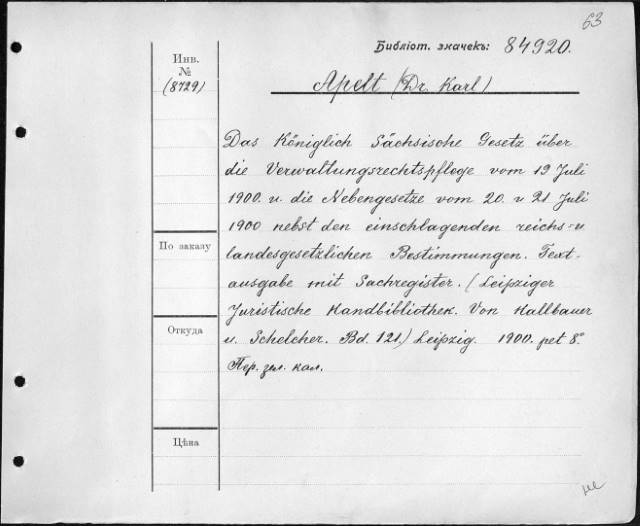 63
Библіот. значекъ: 84920.
Инв.
№
(8729)
Apelt (Dr. Karl)
Das Königlich Sächsische Gesetz über
die Verwaltungsrechtspflege vom 19 Juli
1900. u. die Nebengesetze vom 20. u 21. Juli
1900 nebst den einschlagenden reichs- u
По заказу
landesgesetzlichen Bestimmungen. Text-
ausgabe mit Sachregister. (Leipziger
Juristische Handbibliothek. Von Hallbauer
Откуда
u. Schelcher. Bd. 121.) Leipzig. 1900. pet 8º
Пер. зел. кал.
Цѣна